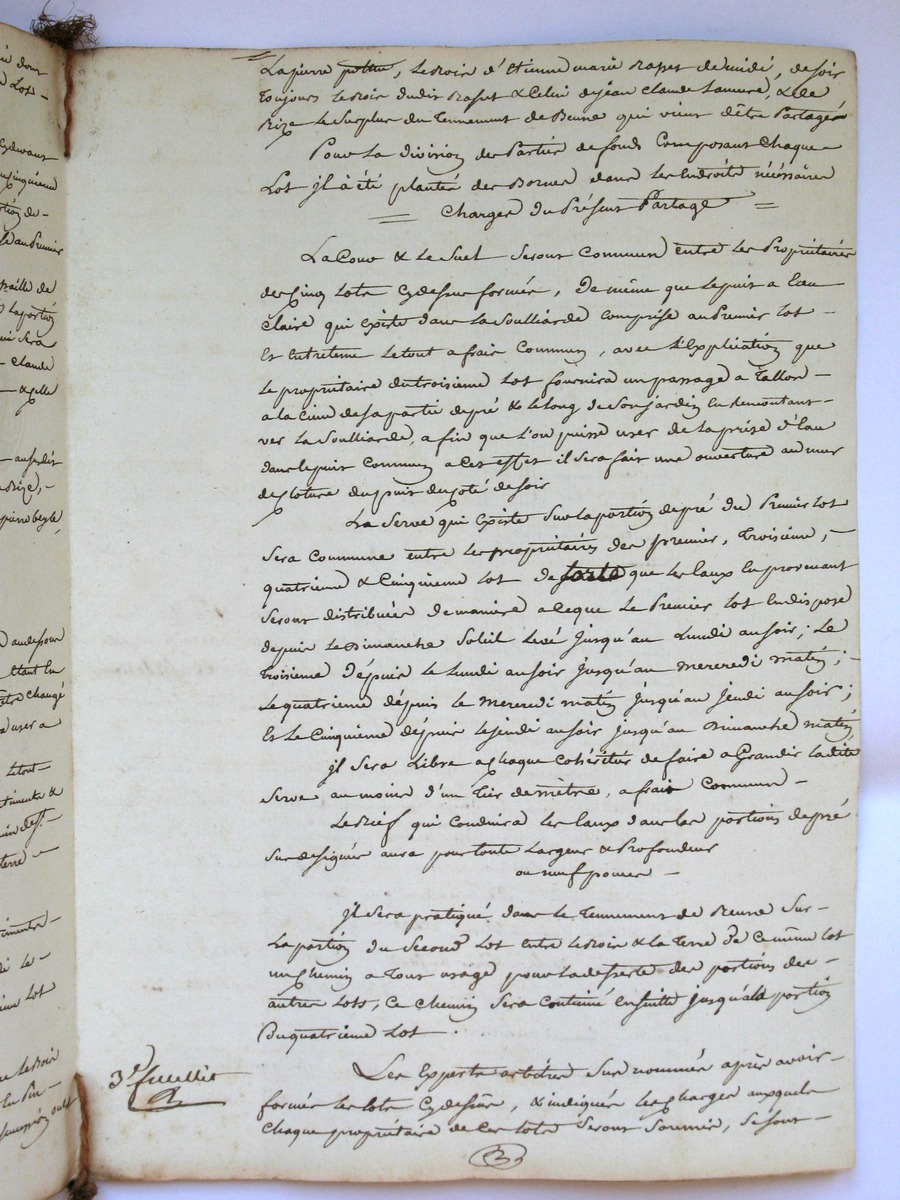 La pierre , le bois d'Etienne marie Rasset de midi, de soir
toujours le bois dudit Rasset & celui de jean claude Lamure, & de
Bize le surplus du Tennement de Beune qui vient d'être Partagée
Pour La division des Parties de fonds composant chaque
Lot il à été planté des Bornes dans les Endroits nécéssaires
Charges du Présent Partage
La Cour & Le Suel seront communs entre les Propriétaires
des Cinq lots cydessus formés, de même que le puit a Eau
claire qui existe dans la Soulliarde comprise au Premier lot
Et Entretenu le tout a frais Communs, avec L'Explication que
Le propriétaire du troisieme Lot fournira un passage a Tallon
a la Cime de sa partie de pré & le long de son jardin En Remontant
ver la Soulliarde, afin que l'on puisse user de la prise d'Eau
dans le puit Commun a cet effet il sera fait une ouverture au mur
de cloture du puit du coté de soir
La Serve qui existe sur la portion de pré du Premier Lot
sera Commune entre les propriétaires des premier, troisieme,
quatrieme & Cinquieme Lot de sorte que les Eaux En provenant
seront distribuées de maniere a ce que Le Premier lot En dispose
depuis Le Dimanche Soleil Levé jusqu'au Lundi au soir; Le
troisieme dépuis Le Lundi au soir jusqu'au mercredi matin;
Le quatrieme dépuis le mercredi matin jusqu'au jeudi au soir;
Et Le Cinquieme dépuis le jeudi au soir jusqu'au Dimanche matin,
il sera Libre a chaque cohéritier de faire aGrandir la dite
Serve au moins d'un tier de mètre, a frais Communs
Le Bief qui conduira les Eaux dans les portions de pré
sus désignées aura pour toute Largeur & Profondeur
ou neuf pouces
il sera pratiqué dans le Tennement de Beune sur
La portion du Second Lot entre le Bois & la terre de ce même lot
un chemin a tout usage pour la deserte des portions des
autres Lots, ce chemin sera continué ensuite jusqu'a la portion
Du quatrieme Lot.
Les Experts arbitres sus nommés après avoir
formés les lots cydessus, & indiqués les charges auxquels
chaque propriétaire de ces lots seront soumis, se sont
3e. feuillet